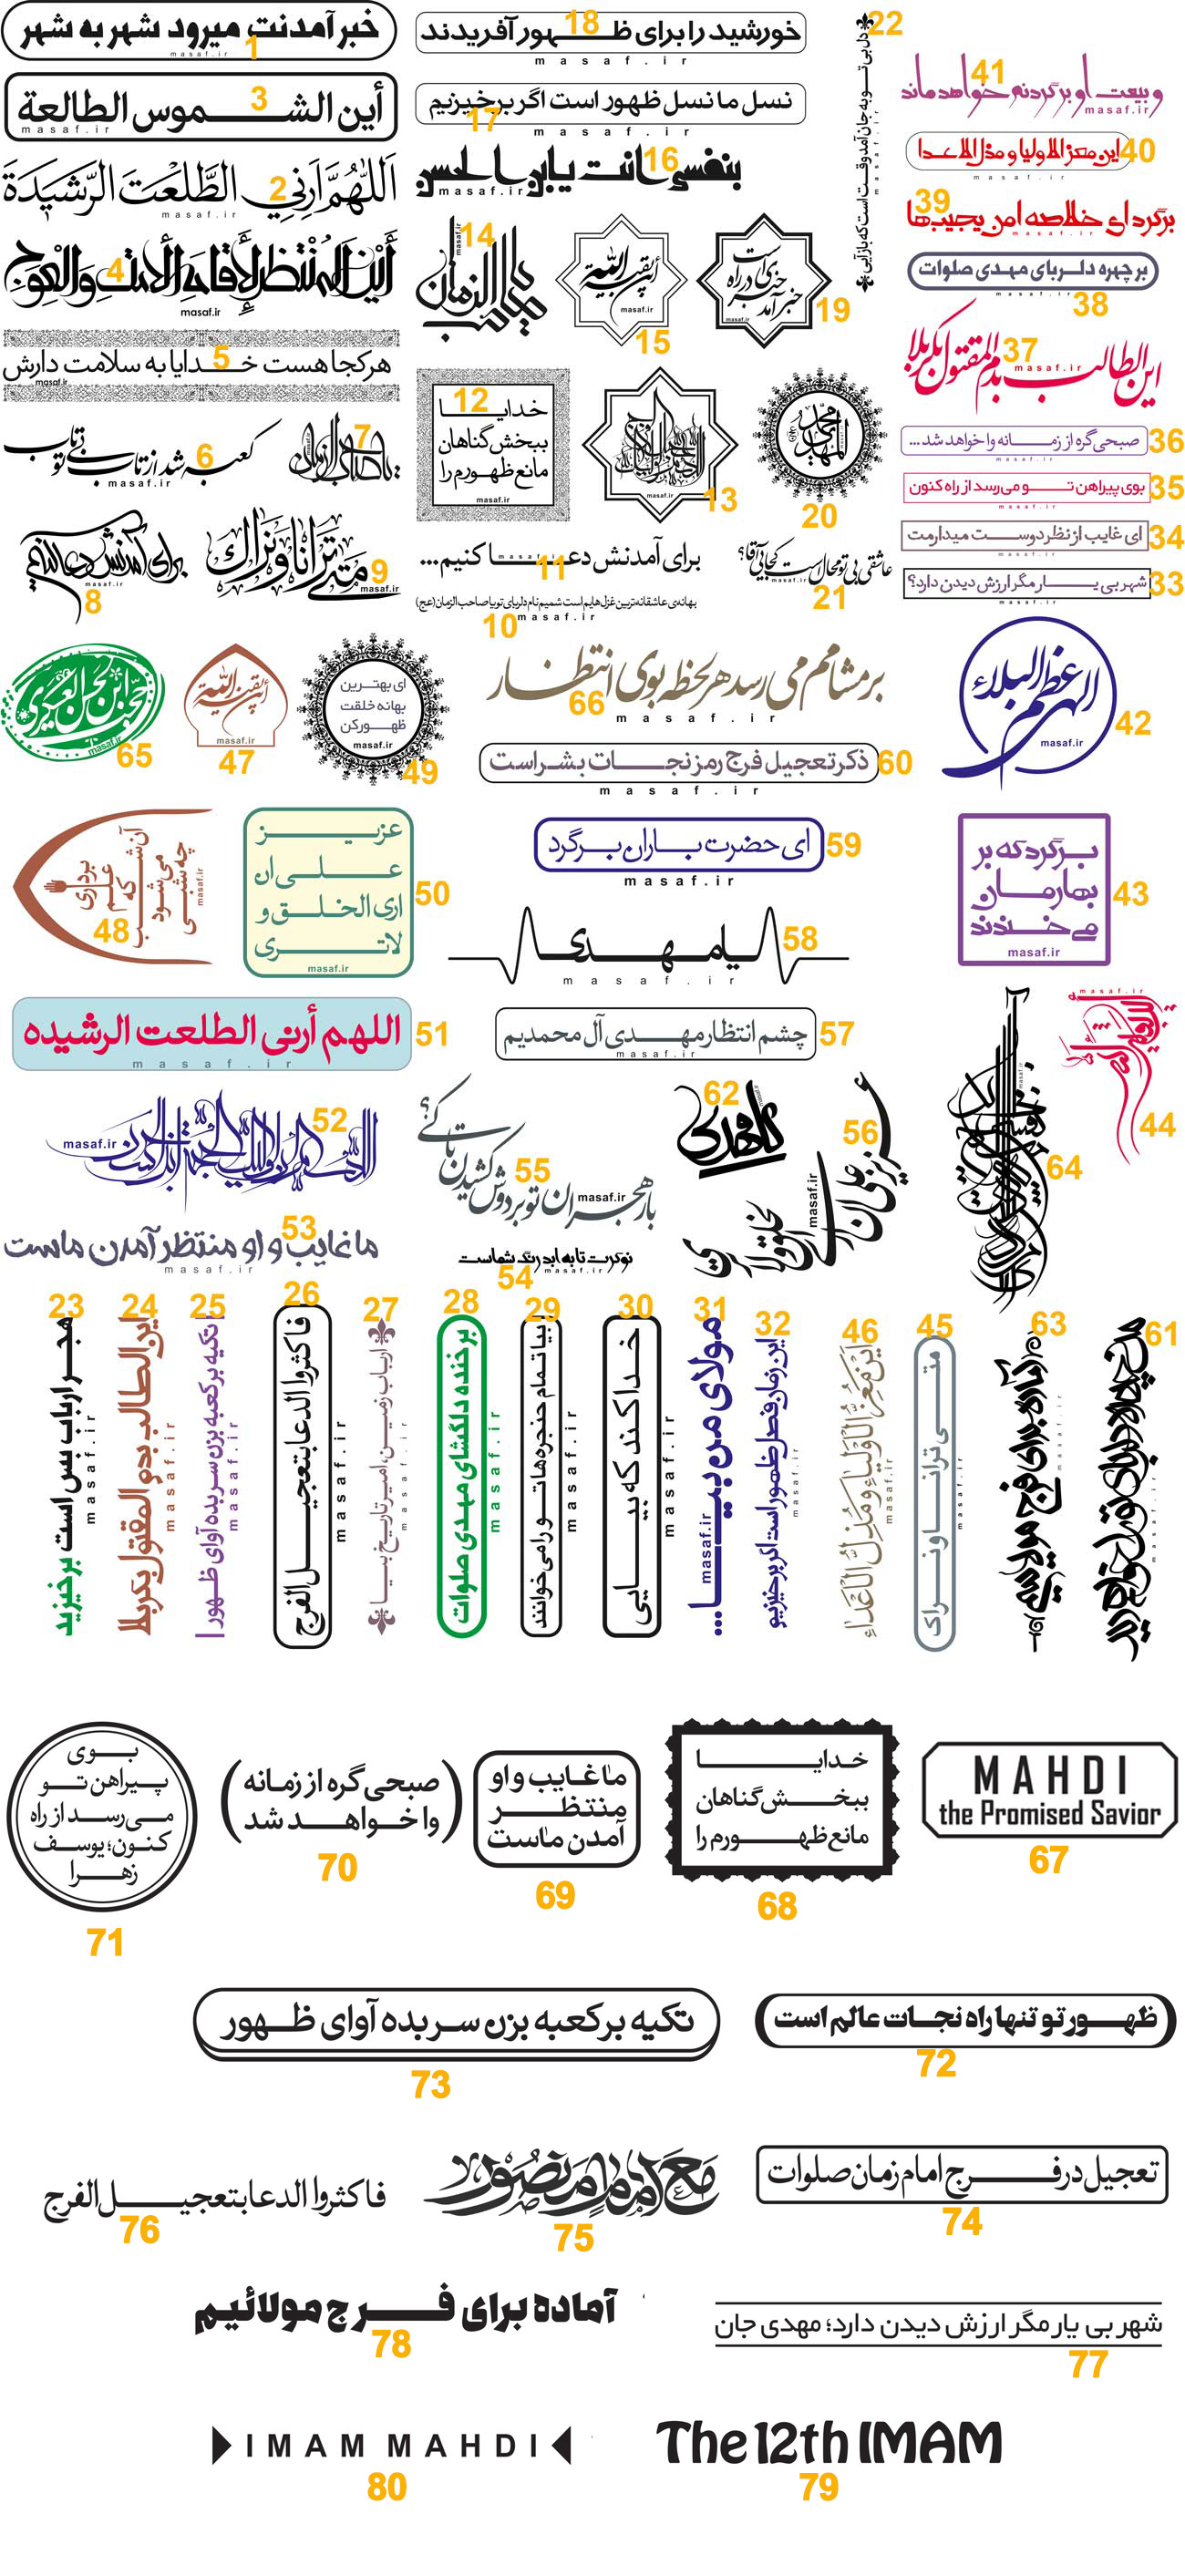 خبر آمدنت میرود شهر به شهر
masaf.ir
1
أین الشموس الطالعة
masaf.ir
3
اَللّهُمَّ اَرِنِي الطَّلعَتَ الرَّشیدَةَ
masaf.ir
2
4
masaf.ir
هرکجا هست خدایا به سلامت دارش
masaf.ir
5
کعبه شد از تاب تو بی تاب
masaf.ir
6
یا صاحب الزمان
7
برای آمدنش دعا کنیم
masaf.ir
8
متی ترانا و نراک
masaf.ir
9
خورشید را برای ظهور آفریدند
masaf.ir
18
نسل ما نسل ظهور است اگر برخیزیم
masaf.ir
17
بنفسی انت یابن الحسن
masaf.ir
16
masaf.ir
14
أین بقیة الله
masaf.ir
15
خبر آمد خبری در راه است
masaf.ir
19
دل بی تو به جان آمد وقت است که بازآیی
masaf.ir
22
خدایا
ببخش گناهان
مانع ظهورم را
masaf.ir
12
masaf.ir
13
محمد المهدی
20
برای آمدنش دعا کنیم...
masaf.ir
11
عاشقی بی تو محال است کجایی آقا؟
masaf.ir
21
بهانه‌ی عاشقانه‌ترین غزل‌هایم است شمیم نام دلربای تو یا صاحب الزمان (عج)
masaf.ir
10
و بیعت او بر گردنم خواهد ماند
masaf.ir
41
این معز الاولیا و مذل الاعدا
masaf.ir
40
برگرد ای خلاصه امن یجیب‌ها
masaf.ir
39
بر چهره دلربای مهدی صلوات
masaf.ir
38
این الطالب بدم المقتول بکربلا
masaf.ir
37
صبحی گره از زمانه وا خواهد شد...
masaf.ir
36
بوی پیراهن تو می‌رسد از راه کنون
masaf.ir
35
ای غایب از نظر دوست میدارمت
masaf.ir
34
شهر بی یار مگر ارزش دیدن دارد؟
masaf.ir
33
الحجة ابن الحسن العسکری
masaf.ir
65
أین بقیة الله
masaf.ir
47
ای بهترین
بهانه خلقت
ظهور کن
masaf.ir
49
بر مشامم می رسد هر لحظه بوی انتظار
masaf.ir
66
ذکر تعجیل فرج رمز نجات بشر است
masaf.ir
60
الهی عظم البلاء
masaf.ir
42
آن شب که علم برداری
چه شبی می‌شود
masaf.ir
48
عزیز
علی ان
اری الخلق و
لاتری
masaf.ir
50
ای حضرت باران برگرد
masaf.ir
59
یا مهدی
masaf.ir
58
برگرد که بر
بهارمان
می خندند
masaf.ir
43
اللهم أرنی الطلعت الرشیده
masaf.ir
51
چشم انتظار مهدی آل محمدیم
masaf.ir
57
masaf.ir
52
ما غایب و او منتظر آمدن ماست
masaf.ir
53
بار هجران تو بر دوش کشیدن تا کی؟
masaf.ir
55
نوکرت تا به ابد رنگ شماست
masaf.ir
54
یا مهدی
62
عزیز علی ان اری الخلق و لا تری
masaf.ir
56
masaf.ir
64
masaf.ir
44
هجر ارباب بس است برخیزید
masaf.ir
23
این الطالب بدم المقتول بکربلا
masaf.ir
24
تکیه بر کعبه بزن سر بده آوای ظهور
masaf.ir
25
فاکثروا الدعا بتعجیل الفرج
masaf.ir
26
ارباب زمین، امیر تاریخ بیا
masaf.ir
27
بر خنده دلگشای مهدی صلوات
masaf.ir
28
بیا تمام حنجره‌ها تو را می‌خوانند
masaf.ir
29
خدا کند که بیایی
masaf.ir
30
مولای من بیا...
masaf.ir
31
این زمان فصل ظهور است اگر برخیزیم
masaf.ir
32
أین مُعِزُّ الأولیاء و مُذِلُّ الأعداء
masaf.ir
46
متی ترانا و نراک
masaf.ir
45
آماده برای فرج مولاییم
masaf.ir
63
masaf.ir
61
بوی
پیراهن تو
می‌رسد از راه
کنون؛ یوسف
زهرا
71
صبحی گره از زمانه
وا خواهد شد
70
ما غایب و او
منتظر
آمدن ماست
69
خدایا
ببخش گناهان
مانع ظهورم را
68
MAHDI
the Promised Savior
67
تکیه بر کعبه بزن سر بده آوای ظهور
73
ظهور تو تنها راه نجات عالم است
72
فاکثروا الدعا بتعجیل الفرج
76
مع امام منصور
75
تعجیل در فرج امام زمان صلوات
74
آماده برای فرج مولائیم
78
شهر بی یار مگر ارزش دیدن دارد؛ مهدی جان
77
IMAM MAHDI
80
The 12th IMAM
79